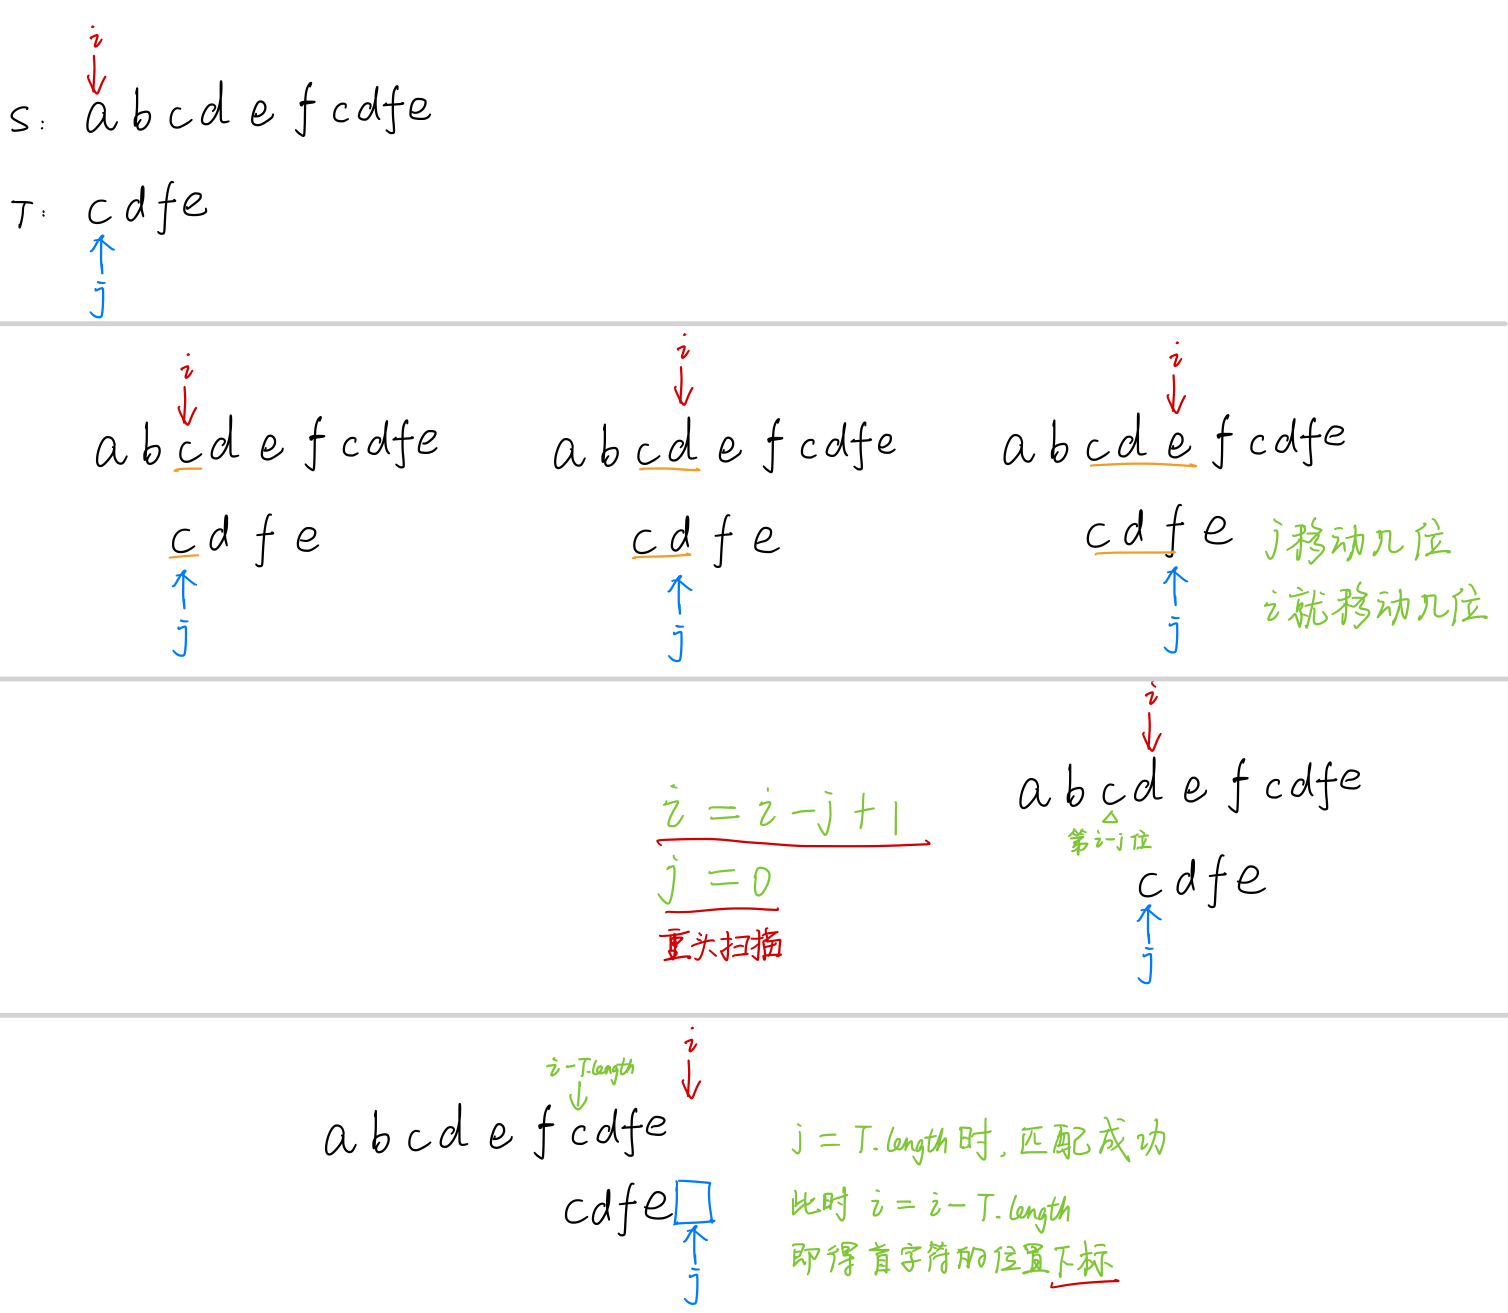 i
S: a b c d e f c d f e
T: c d f e
j
i
a b c d e f c d f e
c d f e
j
i
a b c d e f c d f e
c d f e
j
i
a b c d e f c d f e
c d f e
j
j移动几位
i就移动几位
i = i - j + 1
j = 0
重头扫描
i
a b c d e f c d f e
第i-j位
c d f e
j
i - T.length
i
a b c d e f c d f e
c d f e
j
j = T.length 时, 匹配成功
此时 i = i - T.length
即得首字符的位置下标